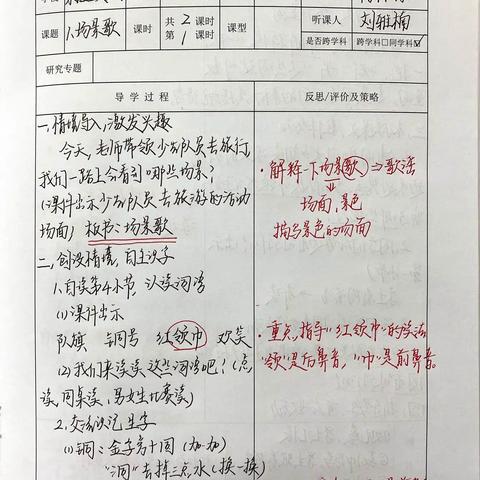 课题 1.场景歌 课时 共 2 课时 第 1 课时 课型 听课人 刘雅楠
是否跨学科 跨学科□同学科☑
研究专题
导 学 过 程 反思/评价及策略
一、情境导入,激发兴趣
今天,老师带领少先队员去旅行,
我们一路上会看到哪些场景?
(课件出示少先队员去旅游的活动
场面) 板书:场景歌
二、创设情境,自主识字
1.自读第4小节,认读词语
(1)课件出示
队旗 铜号 红领巾 欢笑
(2)我们来读读这些词语吧?(点
读,同桌读,男女生比赛读)
2.交流识记生字
(1)铜:金字旁+同(加一加)
"洞"去掉三点水(换一换)
·解释一下场景歌⇒歌谣
⇓
场面,景色
描写景色的场面
·重点,指导"红领巾"的读法
"领"是后鼻音,"巾"是前鼻音。